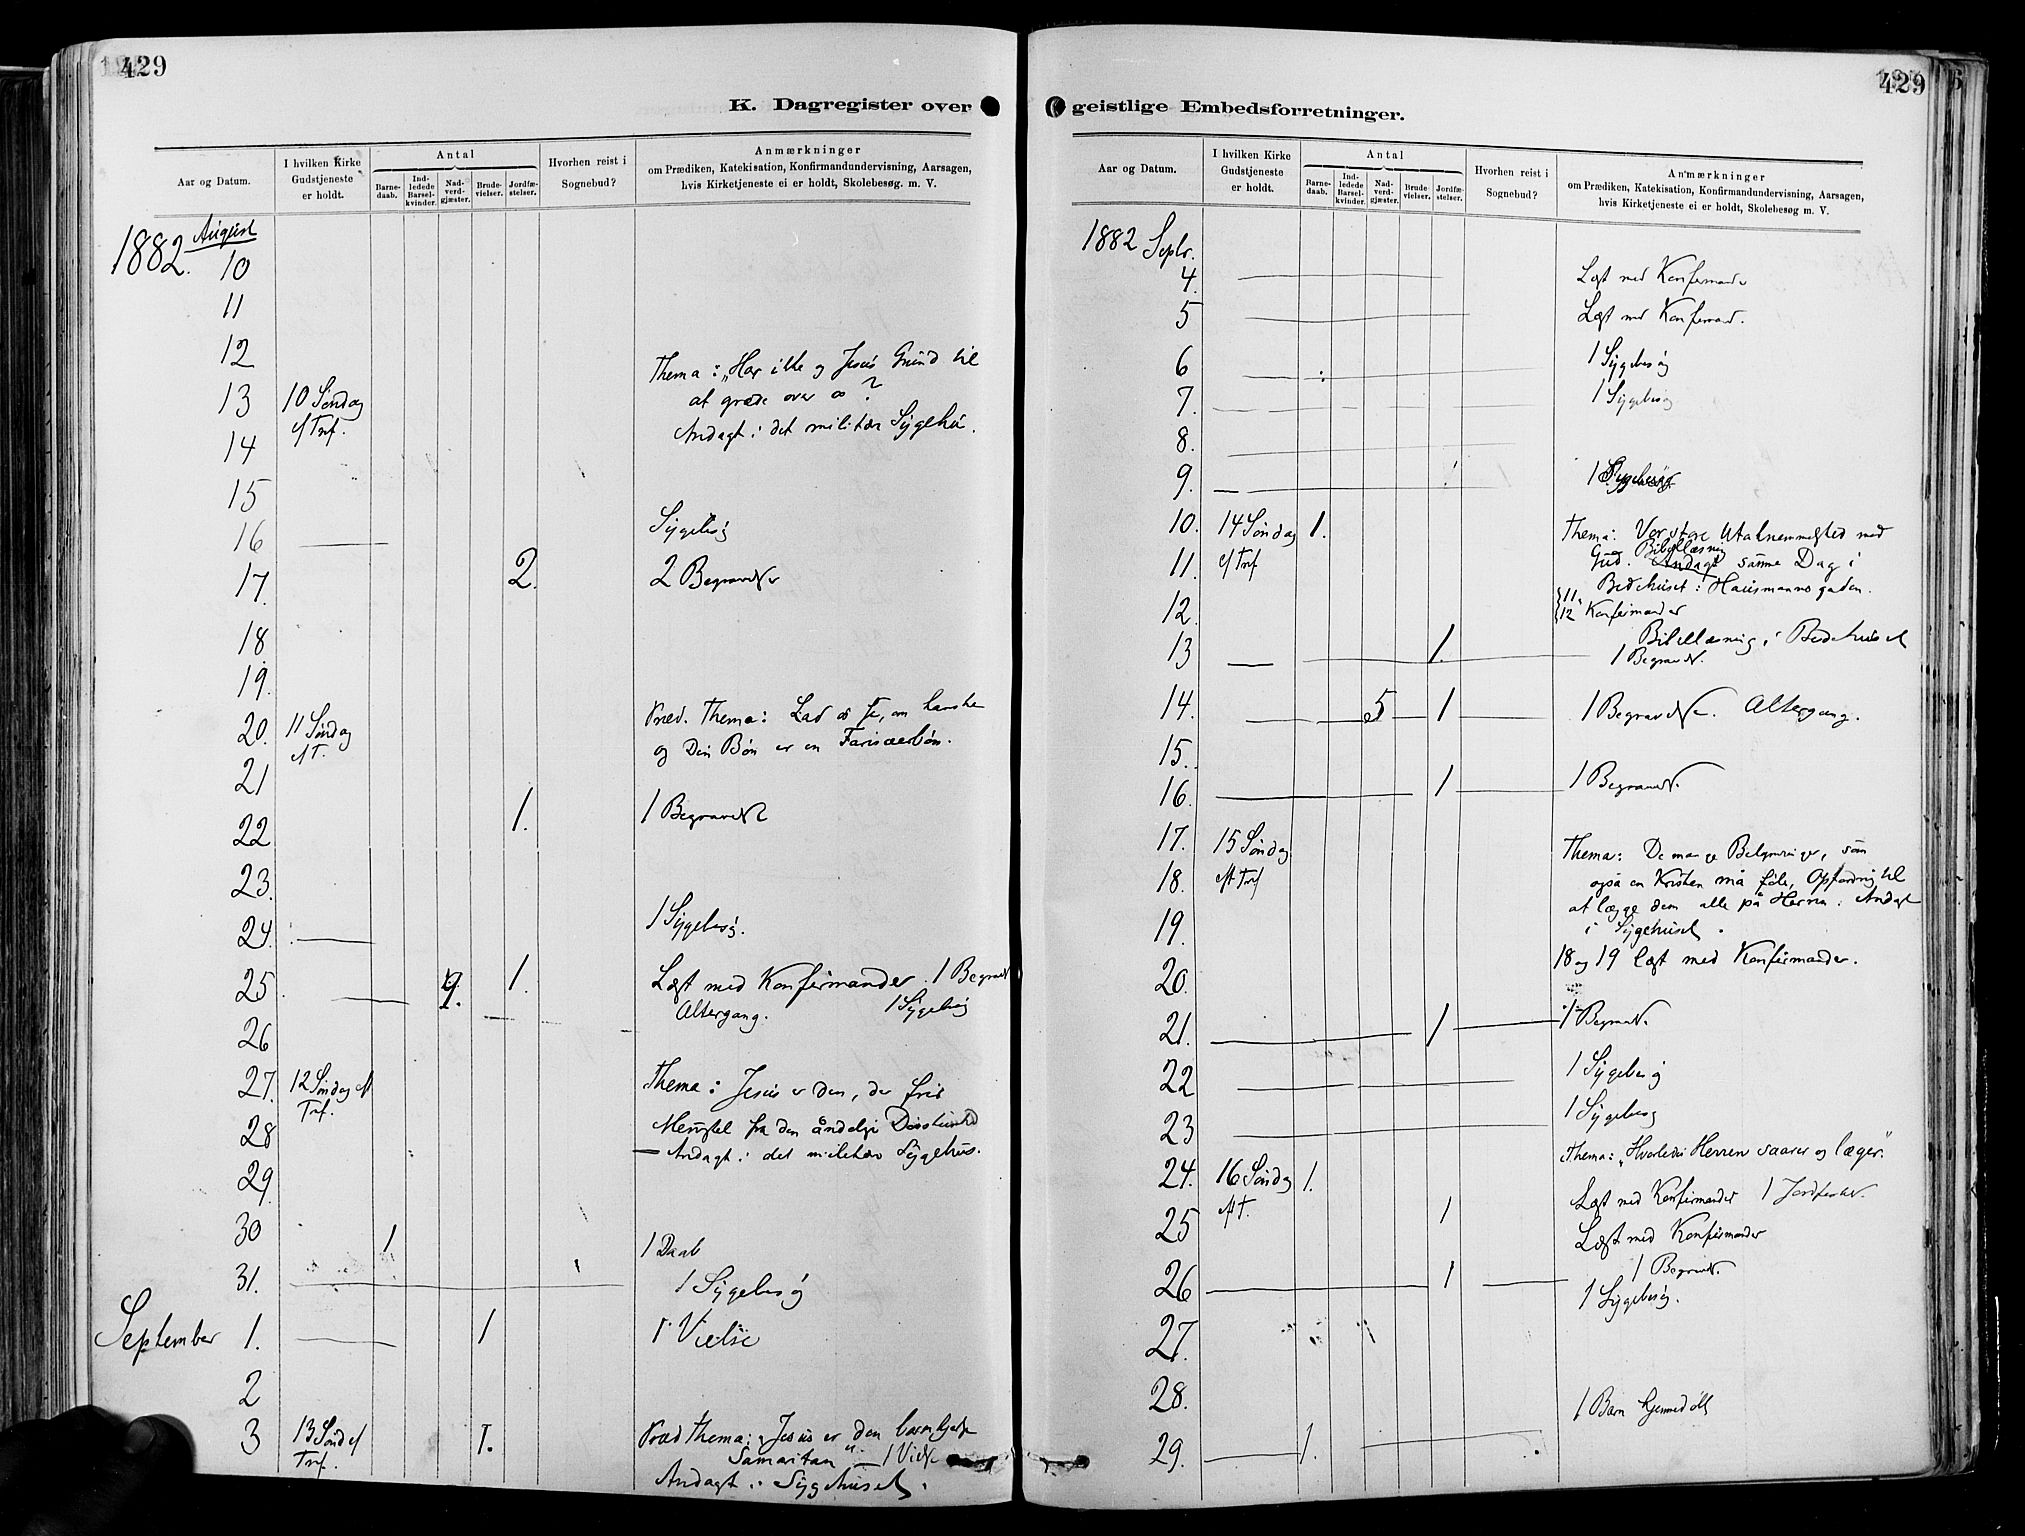 429
K. Dagregister over
Aar og Datum.
I hvilken Kirke
Gudstjeneste
er holdt.
Antal
Barne-
daab.
Ind-
ledede
Barsel-
kvinder.
Nad-
verd-
gjæster.
Brude-
vielser.
Jordfæ-
stelser.
Hvorhen reist i
Sognebud?
Anmærkninger
om Prædiken, Katekisation, Konfirmandundervisning, Aarsagen,
hvis Kirketjeneste ei er holdt, Skolebesøg. m. V.
1882. August
10
11
12
Thema: „Har ikke og Jesus Grund til
13 10 Søndag
at græde over os?
e/ Tref.
Andagt i det militær Sygehu.
14
15
Sygebesøg
16
17. 2. 2 Begravelser
18
19.
Præd. Thema: Lad os se, om kanske
20. 11 Søndag
og Din Bøn er en Farisæerbøn.
eft T.
21
1. 1 Begravelse
22
23.
1 Sygebesøg.
24.
25 9. 1. Læst med Konfirmander. 1 Begrav
Altergang. 1 Sygebesøg
26
27. 12 Søndag eft
Thema: Jesus er den, der frir
Tref.
28
Mennesket fra den åndelige Døvstumhed
— Andagt i det militær Sygehus.
29.
30
1 1 Daab
31. 1 Sygebesøg
September 1. 1 1 Vielse
2
3 13 Sønd e/ 1. Præd Thema: „Jesus er den barmhjertige
Tref. Samaritan“ — 1 Vielse
Andagt i Sygehuset.
429
geistlige Embedsforretninger.
Aar og Datum.
I hvilken Kirke
Gudstjeneste
er holdt.
Antal
Barne-
daab.
Ind-
ledede
Barsel-
kvinder.
Nad-
verd-
gjæster.
Brude-
vielser.
Jordfæ-
stelser.
Hvorhen reist i
Sognebud?
Anmærkninger
om Prædiken, Katekisation, Konfirmandundervisning, Aarsagen,
hvis Kirketjeneste ei er holdt, Skolebesøg m. V.
1882 Septr.
4. Læst med Konfirmander
5 Læst med Konfirmand.
6 1 Sygebesøg
7. 1 Sygebesøg
8.
9. 1 Sygebesøg
10. 14 Søndag 1. Thema: Vor store Utaknemmelighed mod
Gud. Bibellæsning Andagt samme Dag i
11. e/ Tref
Bedehuset i Hausmannsgaden.
12. {11. 12 Konfirmander
Bibellæsning i Bedehuset
13 1. 1 Begravel.
14. 5 1 1 Begravelse. Altergang.
15.
16. 1 1 Begravel.
17. 15 Søndag
Thema: De mange Bekymringer, som
også en Kristen må føle, Opfordring til
18. eft Tref
at lægge dem alle på Herren. Andagt
19. i Sygehuset.
18 og 19 læst med Konfirmander.
20.
21. 1 1 Begravel.
22 1 Sygebesøg
23 1 Sygebesøg
Thema: „Hvorledes Herren saarer og læger“
24. 16 Søndag 1.
eft T.
Læst med Konfirmander 1 Jordfæstel.
25 1
Læst med Konfirmander
1 Begravel.
26 1 1 Sygebesøg.
27.
28.
1 Barn hjemmedøbt
29. 1.